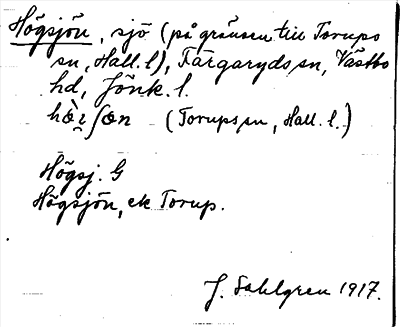 Högsjön, sjö (på gränsen till Torups
sn, Hall. l), Färgaryds sn, Västbo
hd, Jönk. l.
(Torups sn, Hall. l.)
Högsj. G
Högsjön, ek Torup.
J. Sahlgren 1917.